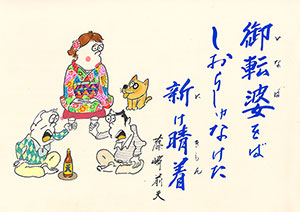 御転婆をば
しおらしゅなけた
新け晴着